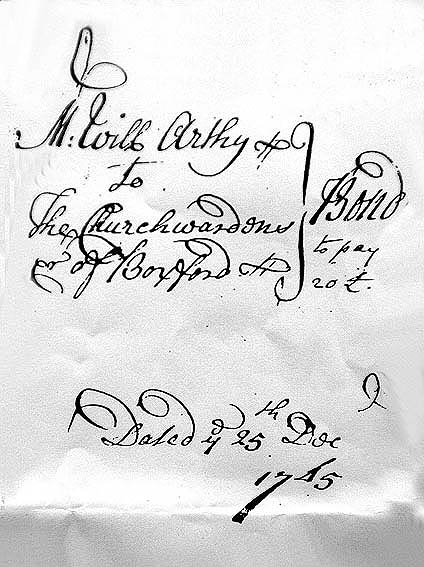 M: Will Arthy
to
The Churchwardens
of Boxford
Bond
to pay
20£.
Dated ye 25th Dec
1745